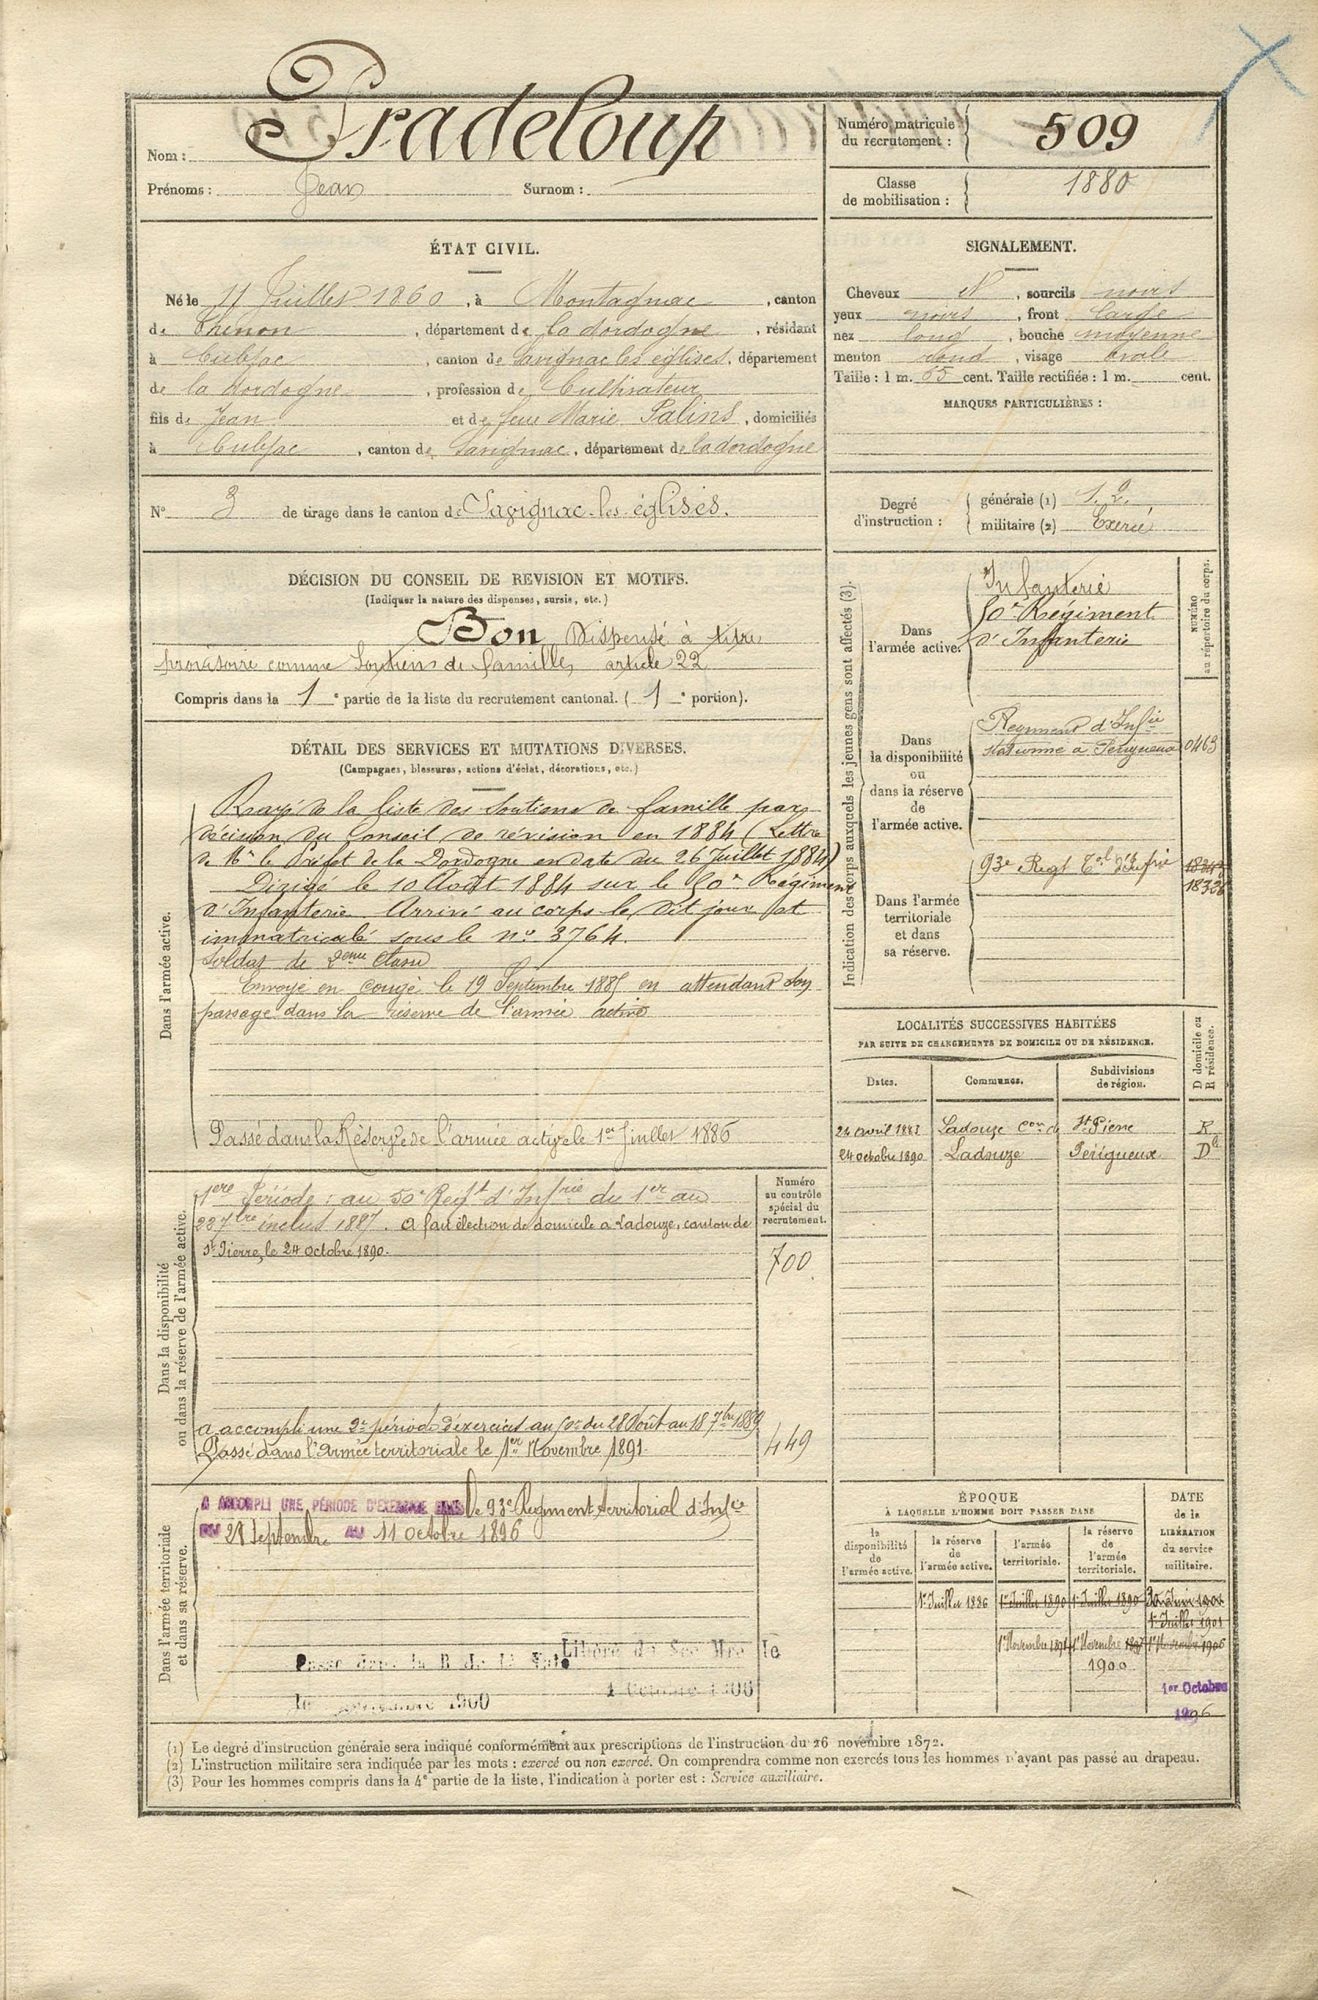 Nom : Pradeloup
Prénoms : Jean Surnom :
Numéro matricule du recrutement : 509
Classe de mobilisation : 1880
ÉTAT CIVIL.
Né le 11 Juillet 1860, à Montagnac, canton
de Thenon, département de la dordogne, résidant
à Cubjac, canton de Savignac les églises, département
de la dordogne, profession de Cultivateur
fils de Jean et de feue Marie Palins, domiciliés
à Cubjac, canton de Savignac, département de la dordogne
N° 3 de tirage dans le canton de Savignac-les-églises.
SIGNALEMENT.
Cheveux N, sourcils noirs
yeux noirs, front large
nez long, bouche moyenne
menton rond, visage ovale
Taille : 1 m. 65 cent. Taille rectifiée : 1 m. cent.
MARQUES PARTICULIÈRES :
Degré d'instruction :
générale (1) 1.2.
militaire (2) Exercé
DÉCISION DU CONSEIL DE REVISION ET MOTIFS.
(Indiquer la nature des dispenses, sursis, etc.)
Bon Dispensé à titre
provisoire comme Soutiens de famille, article 22
Compris dans la 1e partie de la liste du recrutement cantonal. ( 1e portion).
DÉTAIL DES SERVICES ET MUTATIONS DIVERSES.
(Campagnes, blessures, actions d'éclat, décorations, etc.)
Dans l'armée active.
Rayé de la liste des Soutiens de famille par
décision du Conseil de révision en 1884 (Lettre
de Mr le Préfet de la Dordogne en date du 26 Juillet 1884)
Dirigé le 10 Août 1884 sur le 50e Régiment
d'Infanterie. Arrivé au corps le dit jour et
immatriculé sous le n° 3764.
Soldat de 2eme classe
Envoyé en congé le 19 Septembre 1885 en attendant son
passage dans la réserve de l'armée active
Passé dans la Réserve de l'armée active le 1er Juillet 1886
Dans la disponibilité
ou dans la réserve de l'armée active.
1ere Période : au 50e Regt d'Infrie du 1er au
28 7bre inclus 1887. a fait élection de domicile à Ladouze, canton de
St Pierre, le 24 octobre 1890.
a accompli une 2e période d'exercices au 50e du 28 Août au 18 7bre 1889
Passé dans l'Armée territoriale le 1er Novembre 1891.
Numéro
au contrôle
spécial du
recrutement.
700
449
Dans l'armée territoriale
et dans sa réserve.
A ACCOMPLI UNE PÉRIODE D'EXERCICE DANS le 93e Régiment territorial d'Infie
DU 28 Septembre AU 11 octobre 1896
Passé dans la R de l'A Tale
1900
Libéré du Sce Mre le
1 Octobre 1906
Indication des corps auxquels les jeunes gens sont affectés (3).
Dans
l'armée active.
Infanterie
50e Régiment
d'Infanterie
NUMÉRO
au répertoire du corps.
Dans
la disponibilité
ou
dans la réserve
de
l'armée active.
Regiment d'Infie
stationné à Périgueux
0463
Dans l'armée
territoriale
et dans
sa réserve.
93e Regt Tal d'Infie
18328
LOCALITÉS SUCCESSIVES HABITÉES
PAR SUITE DE CHANGEMENTS DE DOMICILE OU DE RÉSIDENCE.
Dates. Communes. Subdivisions de région. D domicile ou R résidence.
Ladouze Con de St Pierre R
24 octobre 1890 Ladouze Périgueux D
ÉPOQUE
À LAQUELLE L'HOMME DOIT PASSER DANS
la disponibilité de l'armée active.
la réserve de l'armée active.
l'armée territoriale.
la réserve de l'armée territoriale.
DATE de la LIBÉRATION du service militaire.
1er Juillet 1886 1er Juillet 1890 1er Juillet 1890 30 Juin 1901
1er Juillet 1901
1er Novembre 1891 1er Novembre 1897 1er Novembre 1906
1900
1er Octobre
1906
(1) Le degré d'instruction générale sera indiqué conformément aux prescriptions de l'instruction du 26 novembre 1872.
(2) L'instruction militaire sera indiquée par les mots : exercé ou non exercé. On comprendra comme non exercés tous les hommes n'ayant pas passé au drapeau.
(3) Pour les hommes compris dans la 4e partie de la liste, l'indication à porter est : Service auxiliaire.